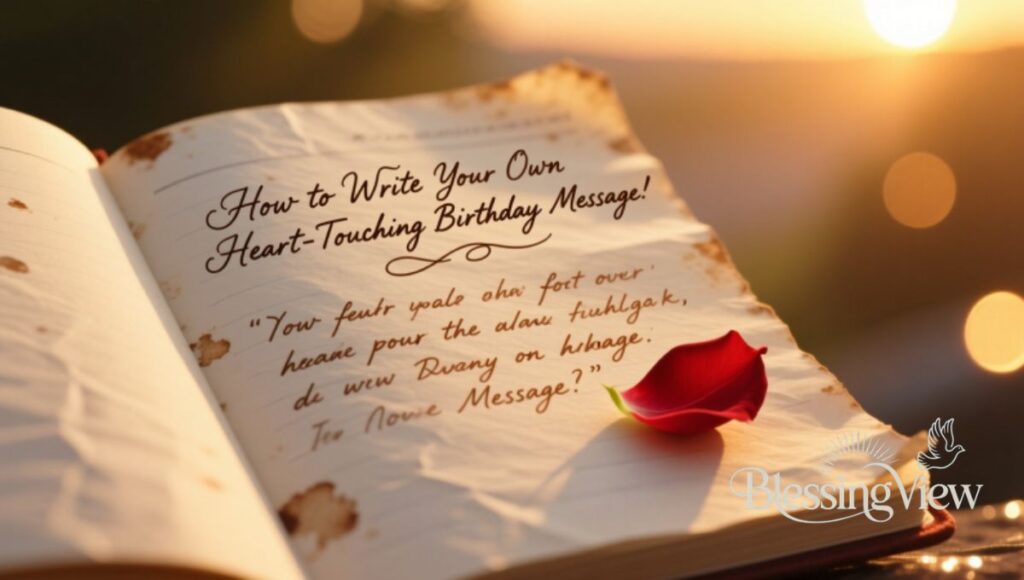 How to Write Your Own
Heart-Touching Birthday Message!
"Your feutr ypale ohn foct over
heaane pour the alawe fiuhlgak,
de wew Dwany on hibage.
Tew Nowe Message?"
BlessingView